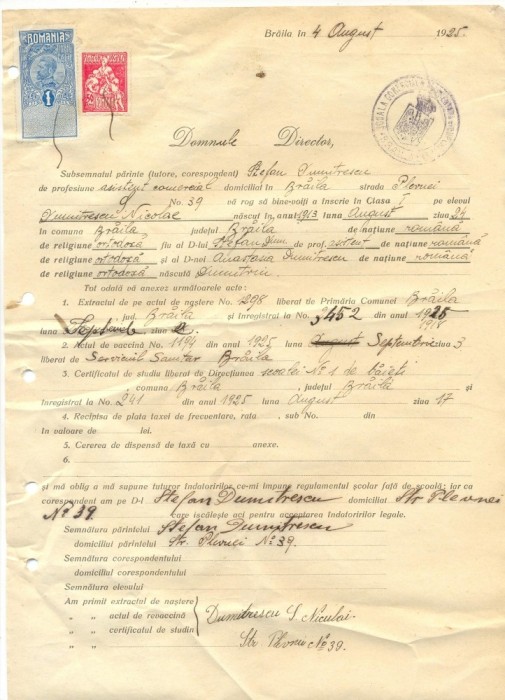 Brăila în 4 August 1925.
ROMANIA
1
Domnule Director,
Subsemnatul părinte (tutore, corespondent) Ștefan Dumitrescu
de profesiune asistent comercial domiciliat în Brăila strada Plevnei
No. 39 vă rog să bine-voiți a înscrie în Clasa I pe elevul
Dumitrescu Nicolae născut în anul 1913 luna August ziua 24
în comuna Brăila județul Brăila de națiune română
de religiune ortodoxă fiu al D-lui Ștefan Dum. de prof. de națiune română
de religiune ortodoxă și al D-nei Dumitrescu de națiune română
de religiune ortodoxă născută Dumitriu
Tot odată vă anexez următoarele acte:
1. Extractul de pe actul de naștere No. 298 liberat de Primăria Comunei Brăila
jud. Brăila și înregistrat la No. 3452 din anul 1925
luna Septembr ziua 2
1918
2. Actul de vaccină No. 1194 din anul 1925 luna August Septembrie ziua 3
liberat de Serviciul Sanitar Brăila
3. Certificatul de studiu liberat de Direcțiunea școalei No 1 de băieți
, comuna Brăila , județul Brăila și
înregistrat la No. 241 din anul 1925 luna August ziua 17
4. Recipisa de plata taxei de frecventare, rata , sub No. din
în valoare de lei.
5. Cererea de dispensă de taxă cu anexe.
6.
și mă oblig a mă supune tuturor îndatoririlor ce-mi impune regulamentul școlar față de școală; iar ca
corespondent am pe D-l Ștefan Dumitrescu domiciliat Str Plevnei
No. 39. care iscălește aci pentru acceptarea îndatoririlor legale.
Semnătura părintelui Ștefan Dumitrescu
domiciliul părintelui Str. Plevnei No 39.
Semnătura corespondentului
domiciliul corespondentului
Semnătura elevului
Am primit extractul de naștere
„ „ actul de revaccină Dumitrescu S. Niculai
„ „ certificatul de studiu
„ „ Str Plevnei No 39.